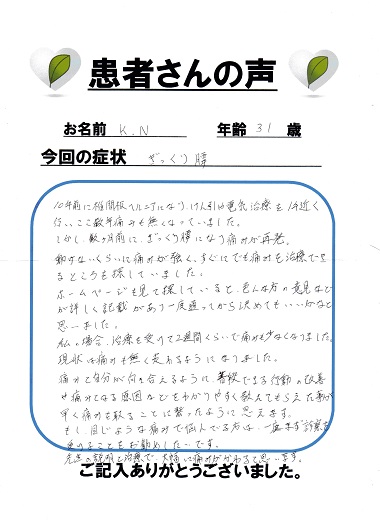 患者さんの声
お名前 K.N 年齢 31 歳
今回の症状 ぎっくり腰
10年前に椎間板ヘルニアになり、けん引や電気治療を1年近く
行い、ここ数年痛みも無くなっていました。
しかし、数ヶ月前に、ぎっくり腰になり痛みが再発。
動けないくらいに痛みが強く、すぐにでも痛みを治療できる
ところを探していました。
ホームページを見て探していると、色んな方の意見など
が詳しく記載があり一度通ってから決めてもいいかなと
思いました。
私の場合、治療を受けて2週間くらいで痛みも少なくなりました。
現状は痛みも無く走れるようになりました。
痛みと自分が向き合えるように、普段できる行動の改善
や痛みとなる原因などをわかりやすく教えてもらえた事が
早く痛みを取ることに繋ったように思えます。
もし、同じような痛みで悩んでいる方は、一度まず診察を
受けることをお勧めしたいです。
先生の説明と治療で、大幅に痛みがかわると思います。
ご記入ありがとうございました。